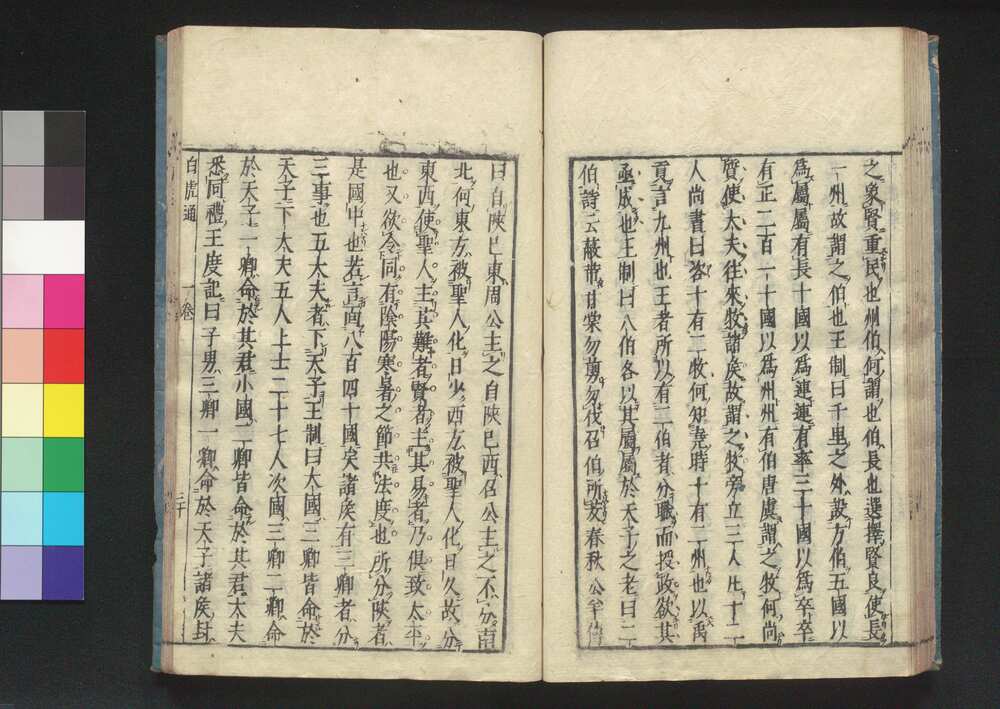 之象賢重民也州伯何謂也伯長也選擇賢良使長
一州故謂之伯也王制曰千里之外設方伯五國以
爲屬屬有長十國以爲連連有率三十國以爲卒卒
有正二百一十國以爲州州有伯唐虞謂之牧何尚
質使大夫往來牧諸矦故謂之牧旁立三人凡十二
人尚書曰咨十有二牧何知堯時十有二州也以禹
貢言九州也王者所以有二伯者分職而授政欲其
亟成也王制曰八伯各以其屬屬於天子之老曰二
伯詩云蔽芾甘棠勿剪勿伐召伯所茇春秋公羊傳
曰自陝已東周公主之自陝已西召公主之不分南
北何東方被聖人化日少西方被聖人化日久故分
東西使聖人主其難者賢者主其易者乃俱致太平
也又欲令同有陰陽寒暑之節共法度也所分陝者
是國中也若言面八百四十國矣諸矦有三卿者分
三事也五大夫者下天子王制曰大國三卿皆命於
天子下大夫五人上士二十七人次國三卿二卿命
於天子一卿命於其君小國二卿皆命於其君大夫
悉同禮王度記曰子男三卿一卿命於天子諸矦封
白虎通 一卷 三十